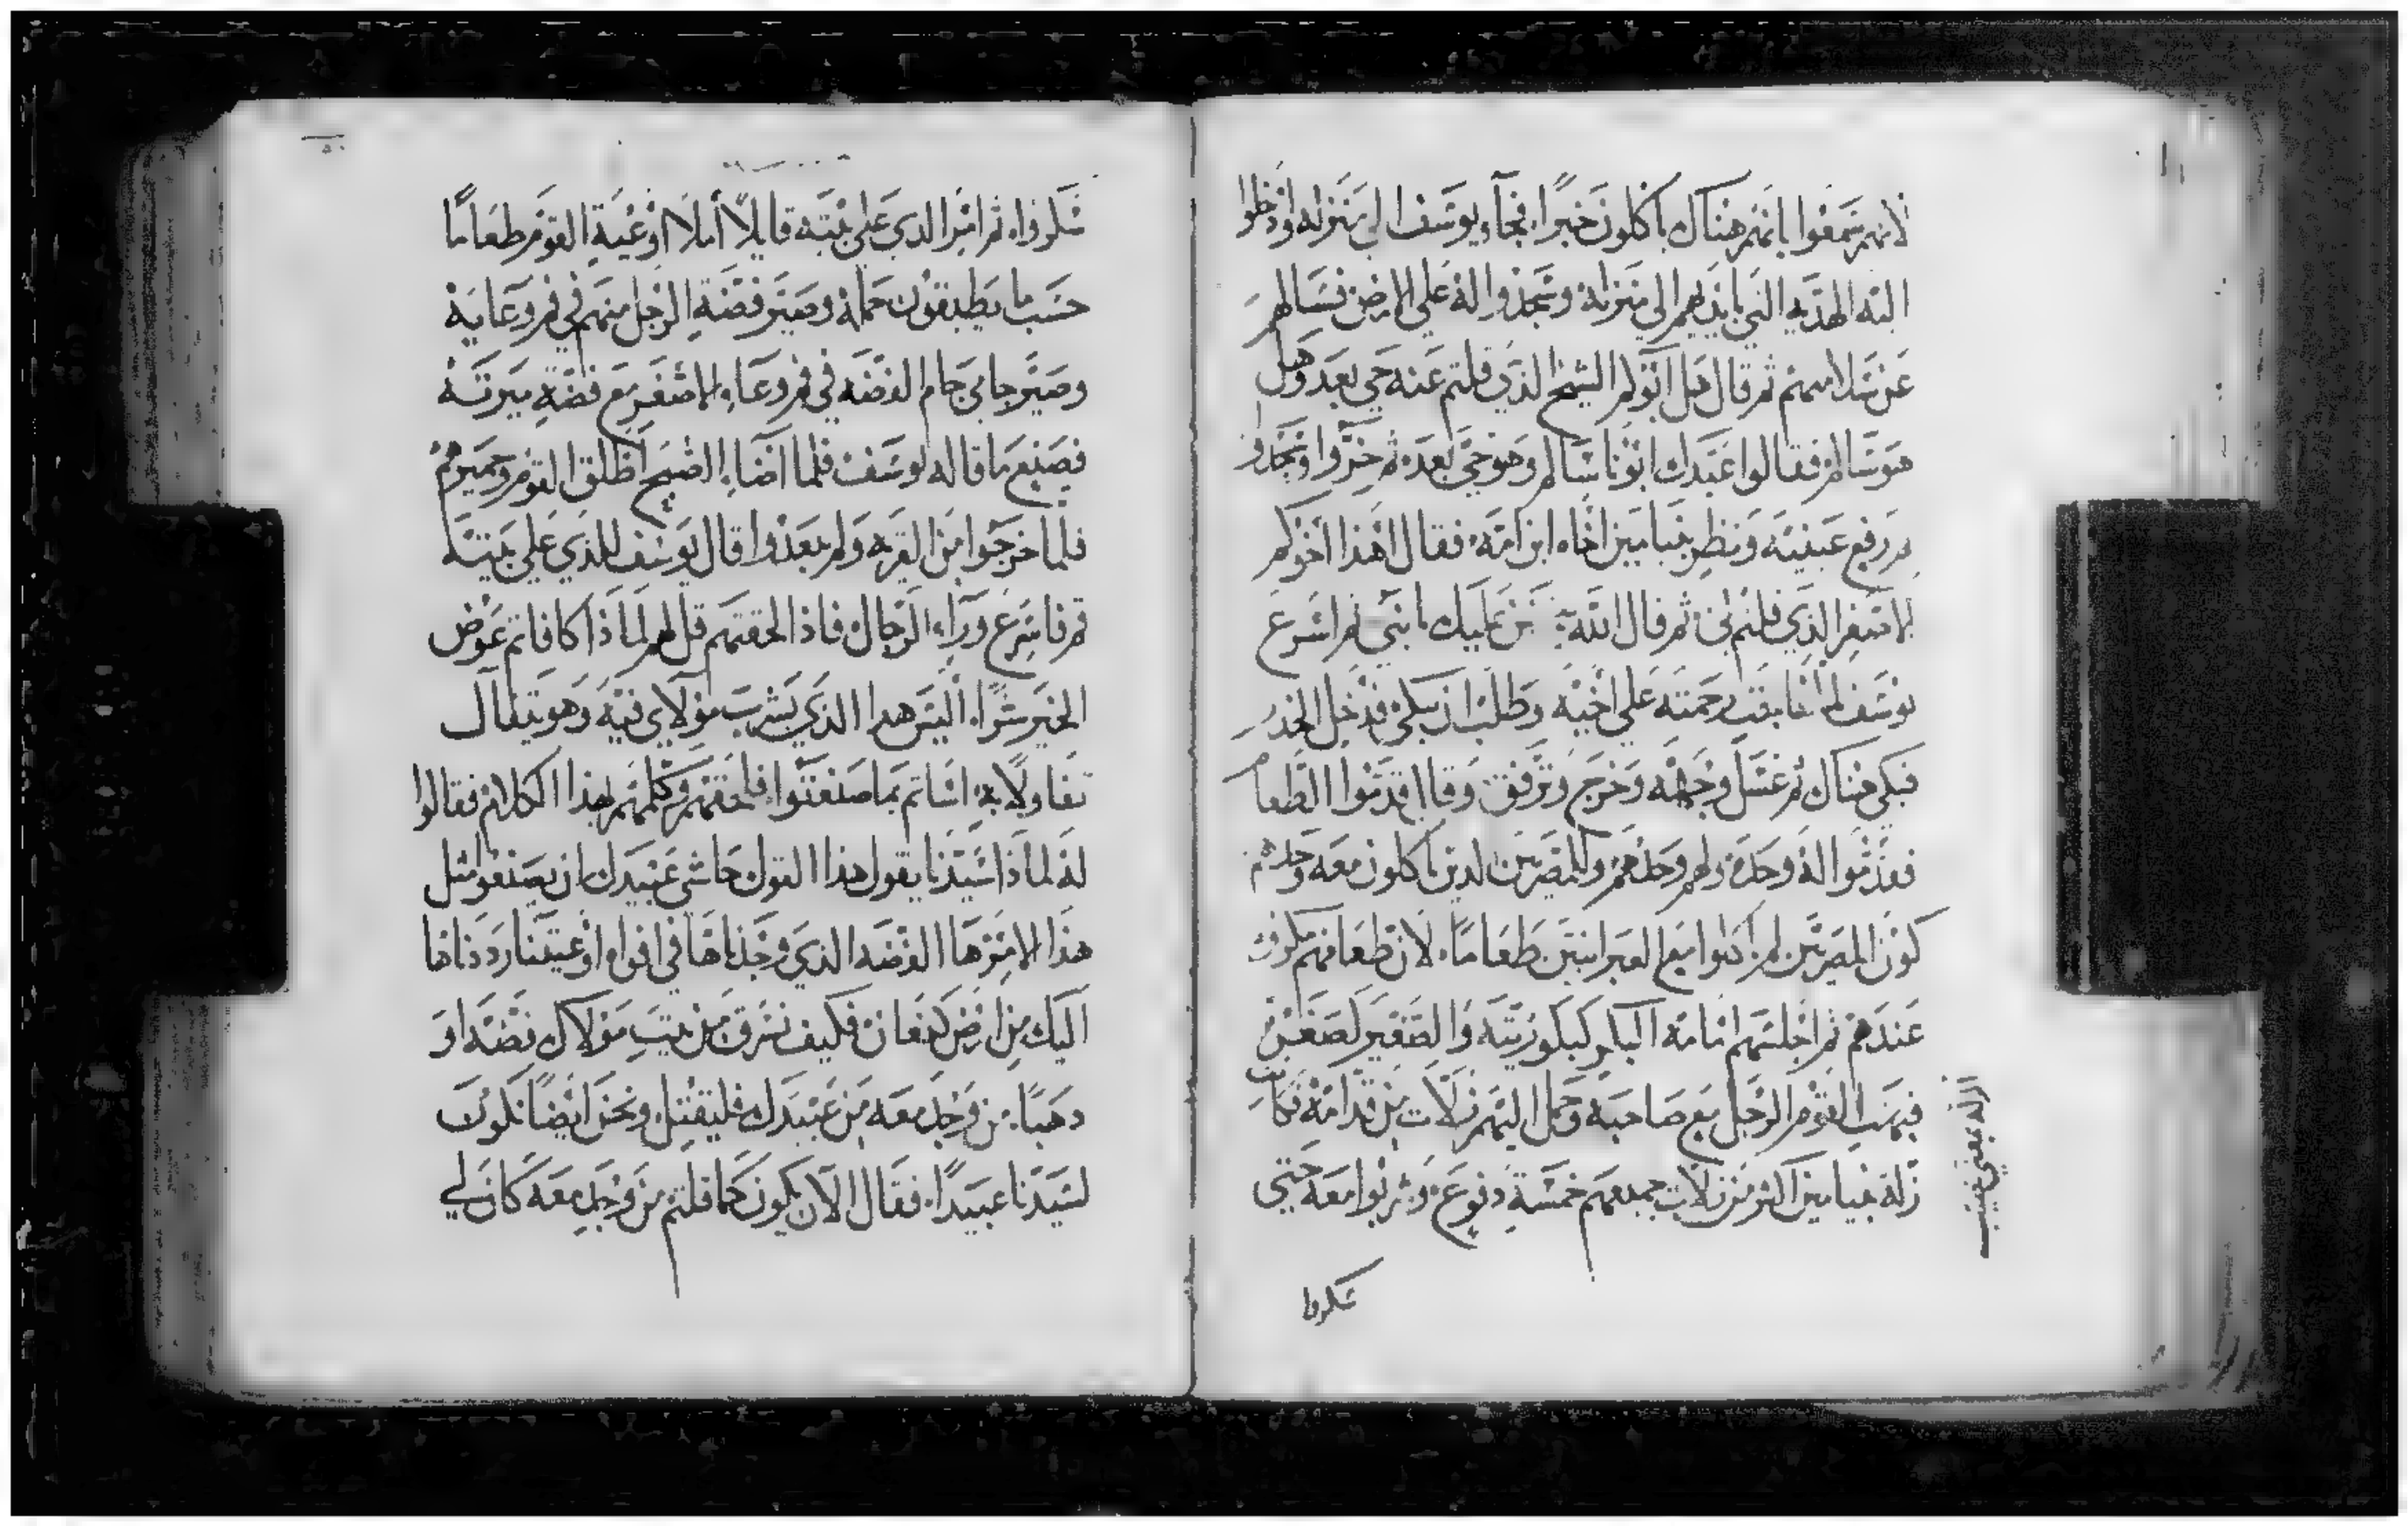 لانهم سمعوا بانهم هناك ياكلون خبزًا. فجآء يوسف الي منزله وادخلوا
اليه الهديه التي بايديهم الي منزله وسجدوا له علي الارض فسالهم
عن سلامهم ثم قال هل ابوكم الشيخ الذي قلتم عنه حي بعد وهل
هو سالم فقالوا عبدك ابونا سالم وهو حي بعد. ثم خرّوا وسجدوا
ثم رفع عينيه ونظر بنيامين اخاه ابن امه. فقال اهذا اخوكم
الاصغر الذي قلتم لي. ثم قال الله يمن عليك يا بني ثم اسرع
يوسف لما تعاقبت رحمته علي اخيه وطلب ان يبكي فدخل الخدر
فبكي هناك ثم غسل وجهه وخرج وترفق وقال قدموا الطعام
فقدموا له وحده ولهم وحدهم وللمصريين الذين ياكلون معه وحدهم
كون المصريين لم ياكلوا مع العبرانيين طعامًا. لان طعامهم مكروه
عندهم ثم اجلسهم امامه الكبير كبكوريته والصغير لصغره
فبهت القوم الرجل مع صاحبه وحمل اليهم زلات من قدامه فكانت
زلة بنيامين اكثر من زلات جميعهم خمسة دفوع وشربوا معه حتي
الزله بمعني نصيب
سكروا
سكروا. ثم امر الذي علي بيته قايلاً أملا اوعية القوم طعامًا
حسب ما يطيقون حمله وصيّر فضة الرجل منهم في فم وعايه
وصيّر جامي جام الفضه في فم وعاء الاصغر مع فضة ميرته
فصنع ما قاله يوسف فلما اضاء الصبح اطلق القوم وحميرهم
فلما خرجوا من القريه ولم يبعدوا قال يوسف للذي علي بيته
قم فاسرع ورآء الرجال فاذا لحقتهم قل لهم لماذا كافاتم عوض
الخير شرًا. اليس هدا الذي يشرب مولاي فيه وهو يتفال
تفاولًا به. اساتم بما صنعتوا. فلحقهم وكلمهم بهذا الكلام فقالوا
له لماذا سيدنا يقول هذا القول حاشي عبيدك ان يصنعوا مثل
هذا الامر ها الفضه الذي وجدناها في افواه اوعيتنا رددناها
اليك من ارض كنعان فكيف نسرق من بيت مولاك فضّه او
دهبًا. من وجد معه من عبيدك فليقتل. ونحن ايضًا نكون
لسيدنا عبيدًا. فقال الآن يكون كما قلتم من وجد معه كان لي